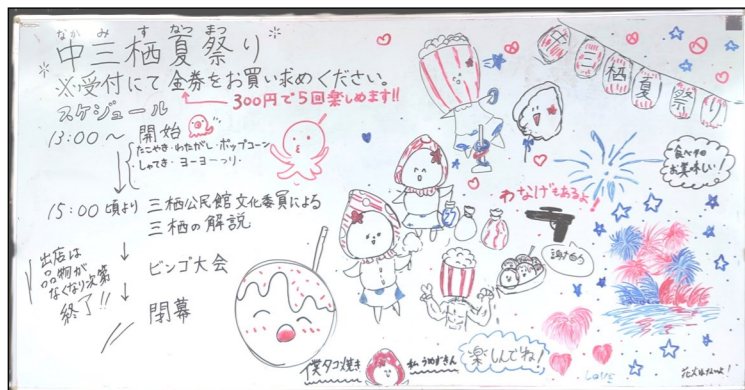 なかみ す なつ まつ
中三栖夏祭り
※受付にて金券をお買い求めください。
300円で5回楽しめます!!
スケジュール
13:00〜 開始
たこやき・わたがし・ポップコーン
しゃてき・ヨーヨーつり・
15:00頃より 三栖公民館文化委員による
三栖の解説
ビンゴ大会
閉幕
出店は
品物が
なくなり次第
終了!!
中三栖夏祭り
食べすぎ
お美味しい!
わなげもあるよ!
楽しんでね!
僕タコ焼き
私うめずきん
Love
花火はないよ!